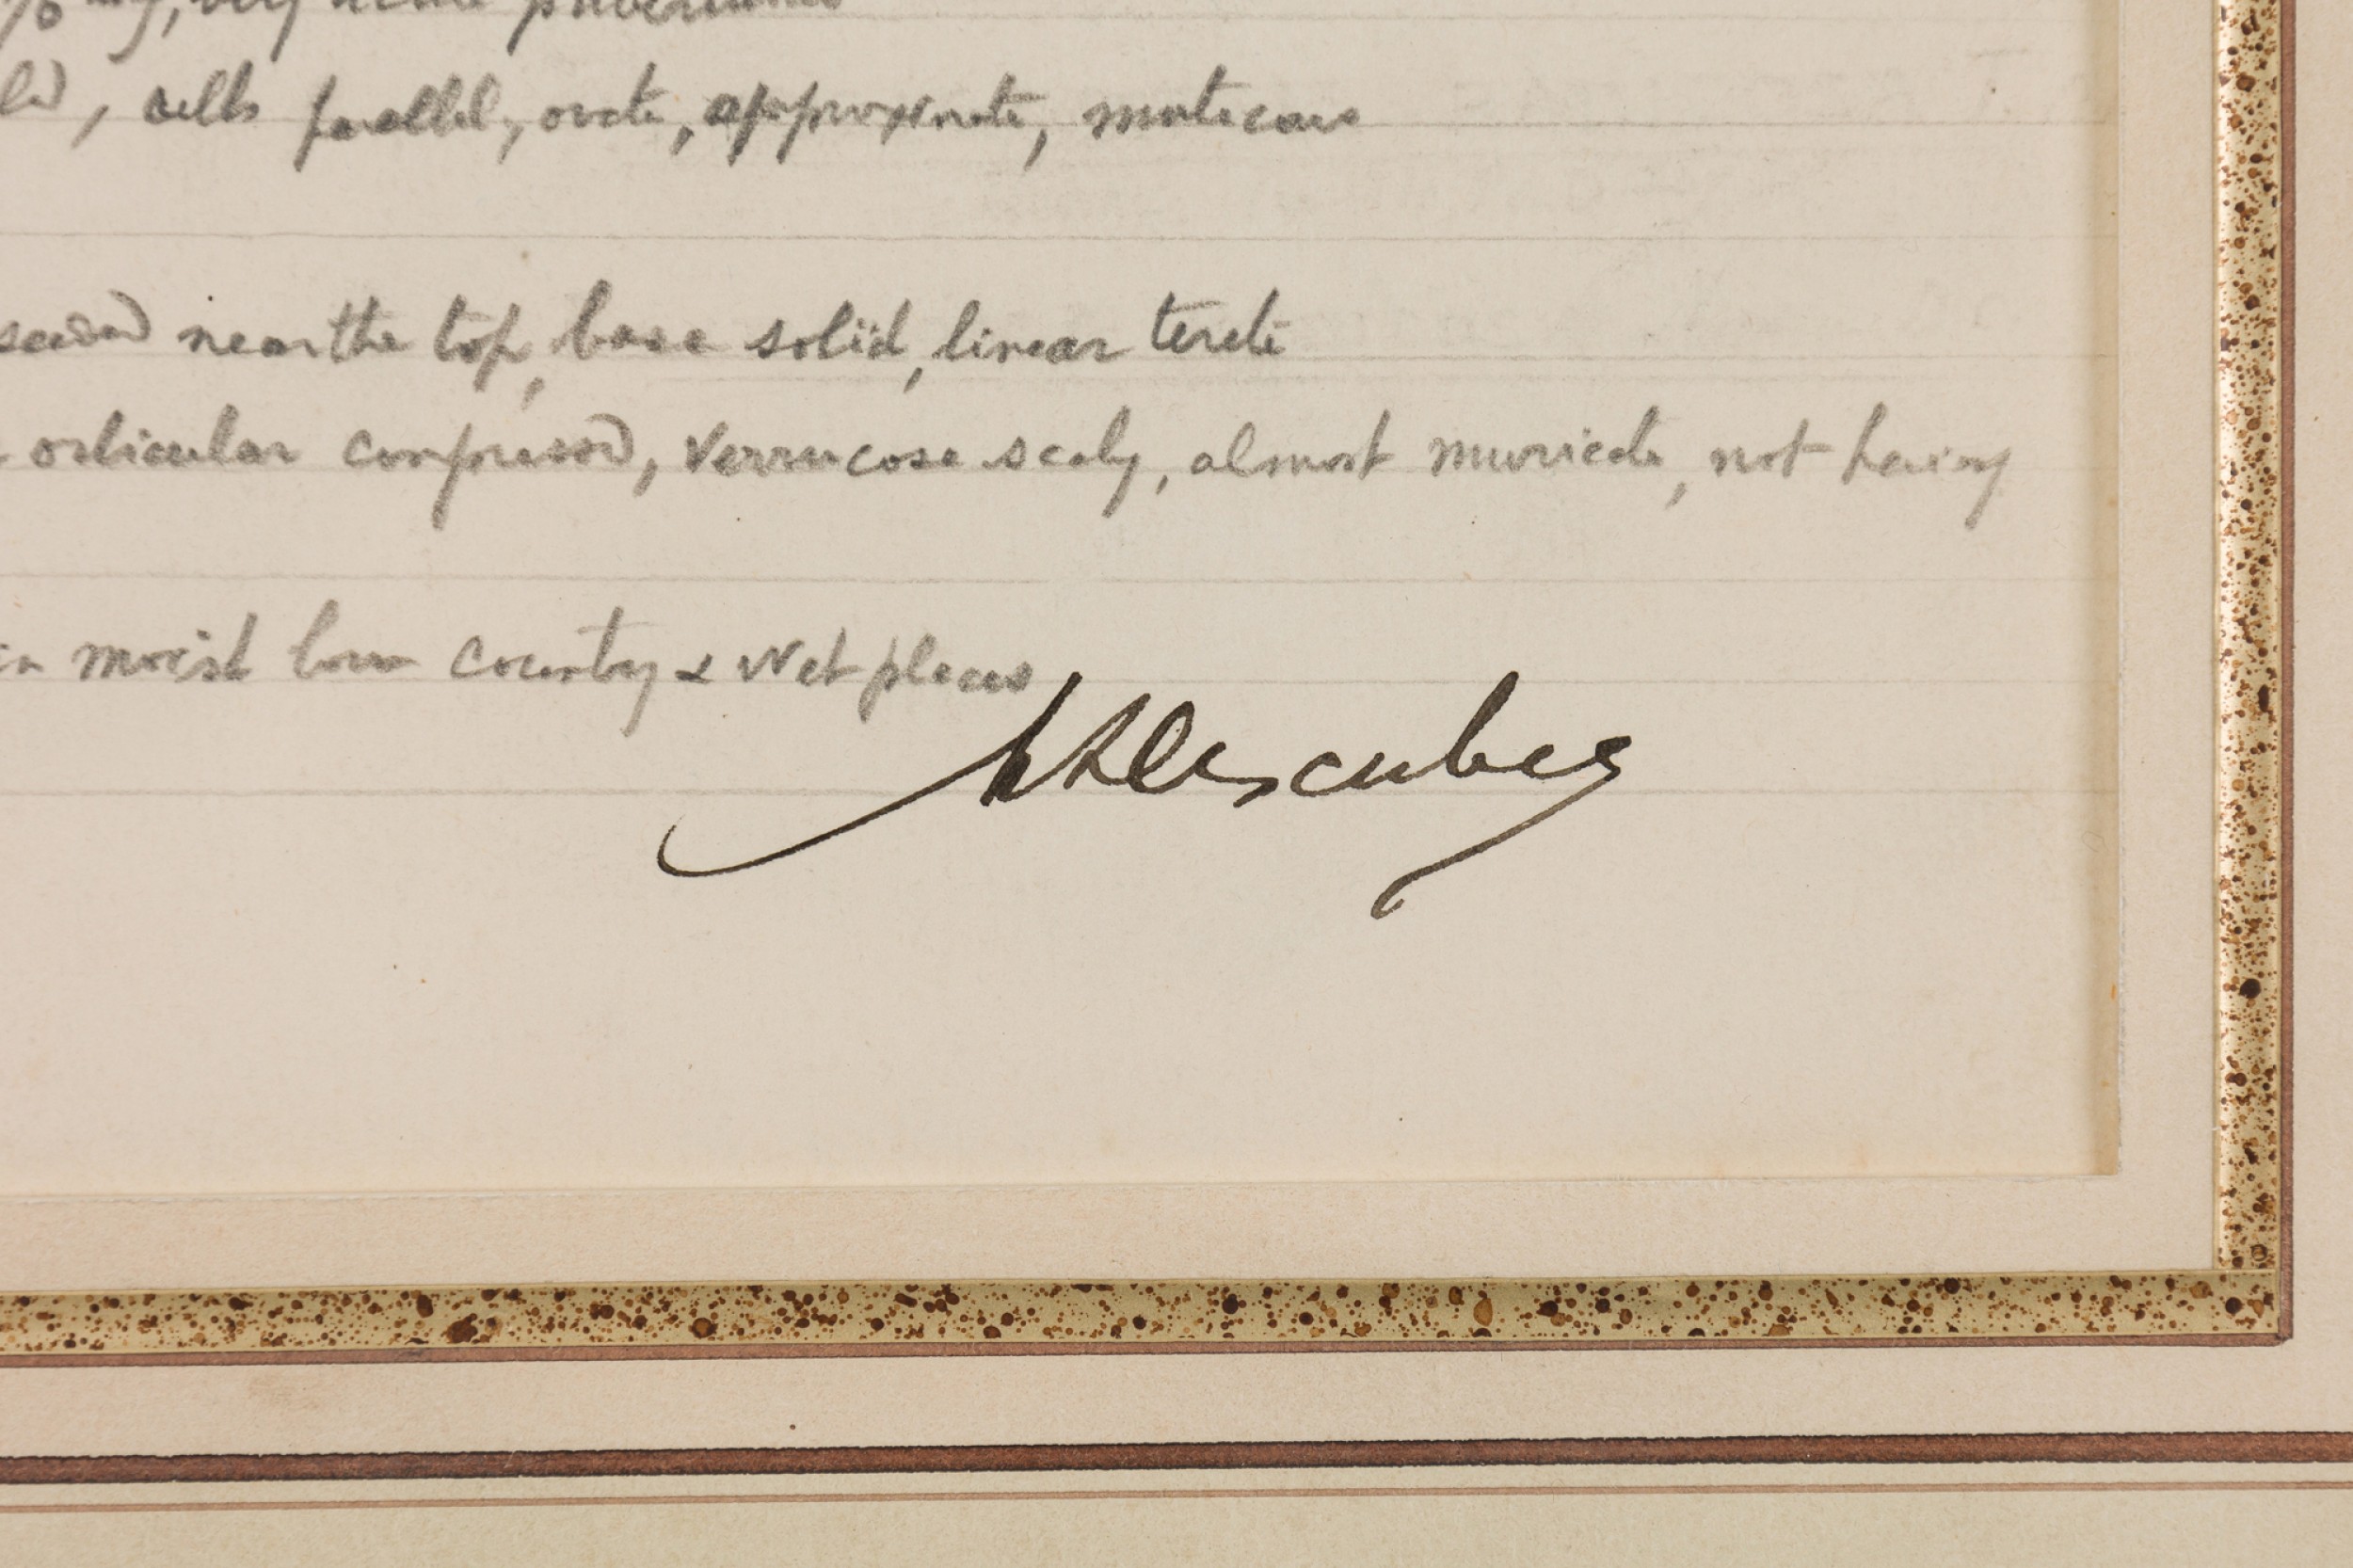 very
cells parallel, ovate, approximate, muticous
near the top, base solid, linear terete
orbicular compressed, verrucose scaly, almost muricate, not having
in moist low country & wet places